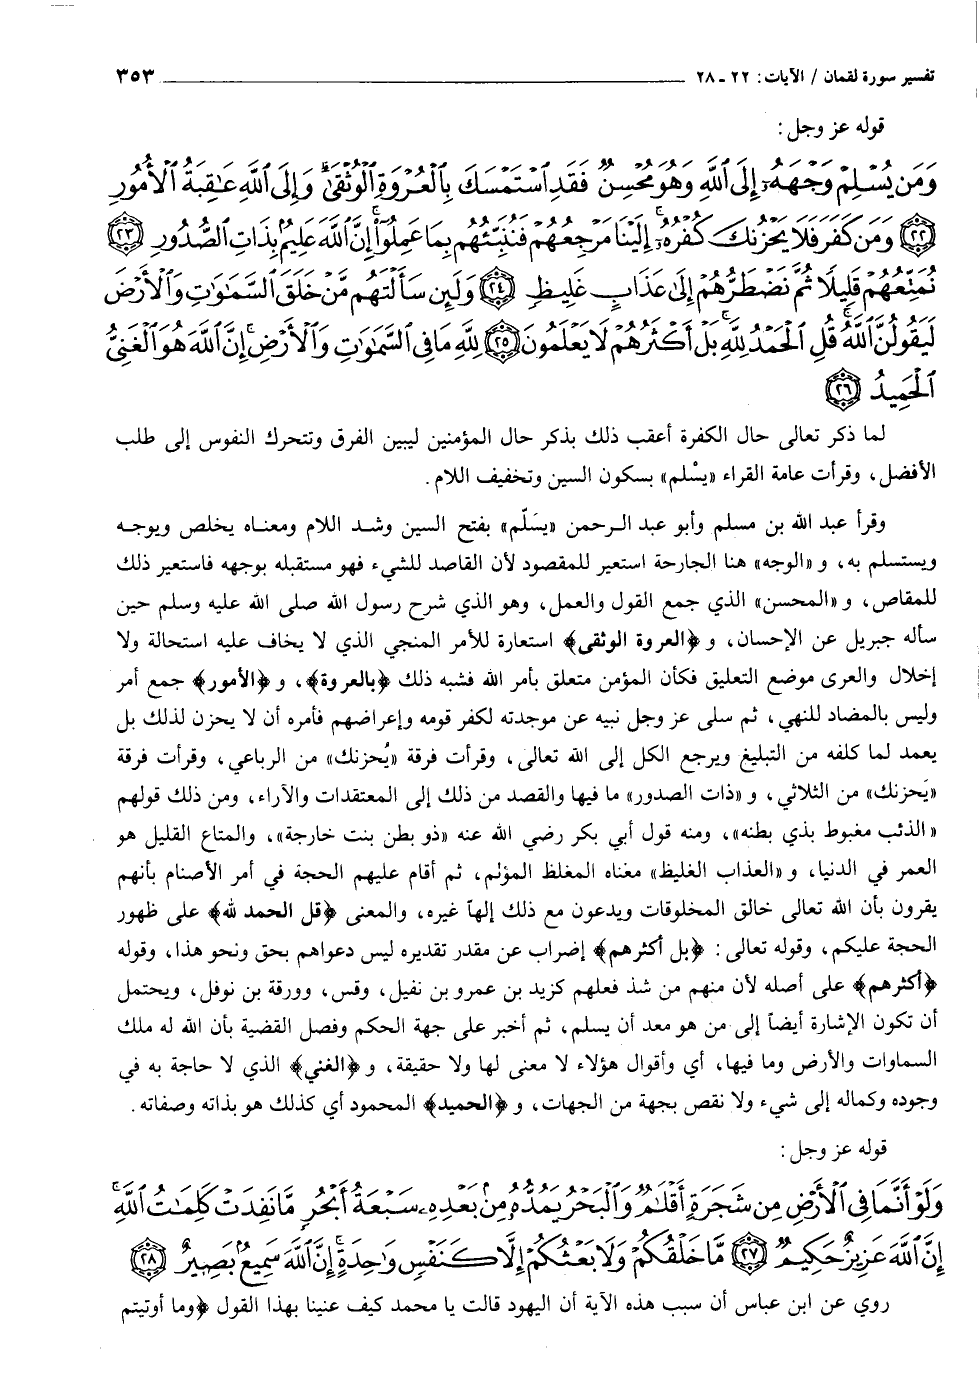 تفسير سورة لقمان / الآيات: ٢٢ ـ ٢٨ ٣٥٣
قوله عز وجل:
وَمَن يُسْلِمْ وَجْهَهُۥٓ إِلَى ٱللَّهِ وَهُوَ مُحْسِنٌ فَقَدِ ٱسْتَمْسَكَ بِٱلْعُرْوَةِ ٱلْوُثْقَىٰ وَإِلَى ٱللَّهِ عَـٰقِبَةُ ٱلْأُمُورِ
﴿٢٢﴾ وَمَن كَفَرَ فَلَا يَحْزُنكَ كُفْرُهُۥٓ إِلَيْنَا مَرْجِعُهُمْ فَنُنَبِّئُهُم بِمَا عَمِلُوٓا۟ إِنَّ ٱللَّهَ عَلِيمٌۢ بِذَاتِ ٱلصُّدُورِ ﴿٢٣﴾
نُمَتِّعُهُمْ قَلِيلًا ثُمَّ نَضْطَرُّهُمْ إِلَىٰ عَذَابٍ غَلِيظٍ ﴿٢٤﴾ وَلَئِن سَأَلْتَهُم مَّنْ خَلَقَ ٱلسَّمَـٰوَٰتِ وَٱلْأَرْضَ
لَيَقُولُنَّ ٱللَّهُ قُلِ ٱلْحَمْدُ لِلَّهِ بَلْ أَكْثَرُهُمْ لَا يَعْلَمُونَ ﴿٢٥﴾ لِلَّهِ مَا فِى ٱلسَّمَـٰوَٰتِ وَٱلْأَرْضِ إِنَّ ٱللَّهَ هُوَ ٱلْغَنِىُّ
ٱلْحَمِيدُ ﴿٢٦﴾
لما ذكر تعالى حال الكفرة أعقب ذلك بذكر حال المؤمنين ليبين الفرق وتتحرك النفوس إلى طلب
الأفضل، وقرأت عامة القراء «يسْلم» بسكون السين وتخفيف اللام.
وقرأ عبد الله بن مسلم وأبو عبد الرحمن «يسَلّم» بفتح السين وشد اللام ومعناه يخلص ويوجه
ويستسلم به، و «الوجه» هنا الجارحة استعير للمقصود لأن القاصد للشيء فهو مستقبله بوجهه فاستعير ذلك
للمقاص، و «المحسن» الذي جمع القول والعمل، وهو الذي شرح رسول الله صلى الله عليه وسلم حين
سأله جبريل عن الإحسان، و ﴿العروة الوثقى﴾ استعارة للأمر المنجي الذي لا يخاف عليه استحالة ولا
إخلال والعرى موضع التعليق فكأن المؤمن متعلق بأمر الله فشبه ذلك ﴿بالعروة﴾، و ﴿الأمور﴾ جمع أمر
وليس بالمضاد للنهي، ثم سلى عز وجل نبيه عن موجدته لكفر قومه وإعراضهم فأمره أن لا يحزن لذلك بل
يعمد لما كلفه من التبليغ ويرجع الكل إلى الله تعالى، وقرأت فرقة «يُحزنك» من الرباعي، وقرأت فرقة
«يَحزنك» من الثلاثي، و «ذات الصدور» ما فيها والقصد من ذلك إلى المعتقدات والآراء، ومن ذلك قولهم
«الذئب مغبوط بذي بطنه»، ومنه قول أبي بكر رضي الله عنه «ذو بطن بنت خارجة»، والمتاع القليل هو
العمر في الدنيا، و «العذاب الغليظ» مغناه المغلظ المؤلم، ثم أقام عليهم الحجة في أمر الأصنام بأنهم
يقرون بأن الله تعالى خالق المخلوقات ويدعون مع ذلك إلهاً غيره، والمعنى ﴿قل الحمد لله﴾ على ظهور
الحجة عليكم، وقوله تعالى: ﴿بل أكثرهم﴾ إضراب عن مقدر تقديره ليس دعواهم بحق ونحو هذا، وقوله
﴿أكثرهم﴾ على أصله لأن منهم من شذ فعلهم كزيد بن عمرو بن نفيل، وقس، وورقة بن نوفل، ويحتمل
أن تكون الإشارة أيضاً إلى من هو معد أن يسلم، ثم أخبر على جهة الحكم وفصل القضية بأن الله له ملك
السماوات والأرض وما فيها، أي وأقوال هؤلاء لا معنى لها ولا حقيقة، و ﴿الغني﴾ الذي لا حاجة به في
وجوده وكماله إلى شيء ولا نقص بجهة من الجهات، و ﴿الحميد﴾ المحمود أي كذلك هو بذاته وصفاته.
قوله عز وجل:
وَلَوْ أَنَّمَا فِى ٱلْأَرْضِ مِن شَجَرَةٍ أَقْلَـٰمٌ وَٱلْبَحْرُ يَمُدُّهُۥ مِنۢ بَعْدِهِۦ سَبْعَةُ أَبْحُرٍ مَّا نَفِدَتْ كَلِمَـٰتُ ٱللَّهِ
إِنَّ ٱللَّهَ عَزِيزٌ حَكِيمٌ ﴿٢٧﴾ مَّا خَلْقُكُمْ وَلَا بَعْثُكُمْ إِلَّا كَنَفْسٍ وَٰحِدَةٍ إِنَّ ٱللَّهَ سَمِيعٌۢ بَصِيرٌ ﴿٢٨﴾
روي عن ابن عباس أن سبب هذه الآية أن اليهود قالت يا محمد كيف عنينا بهذا القول ﴿وما أوتيتم